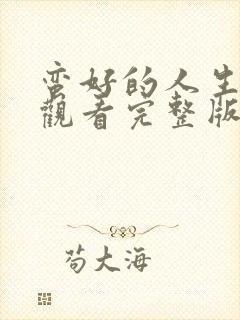 蛮好的人生
觀看完整版
苟大海